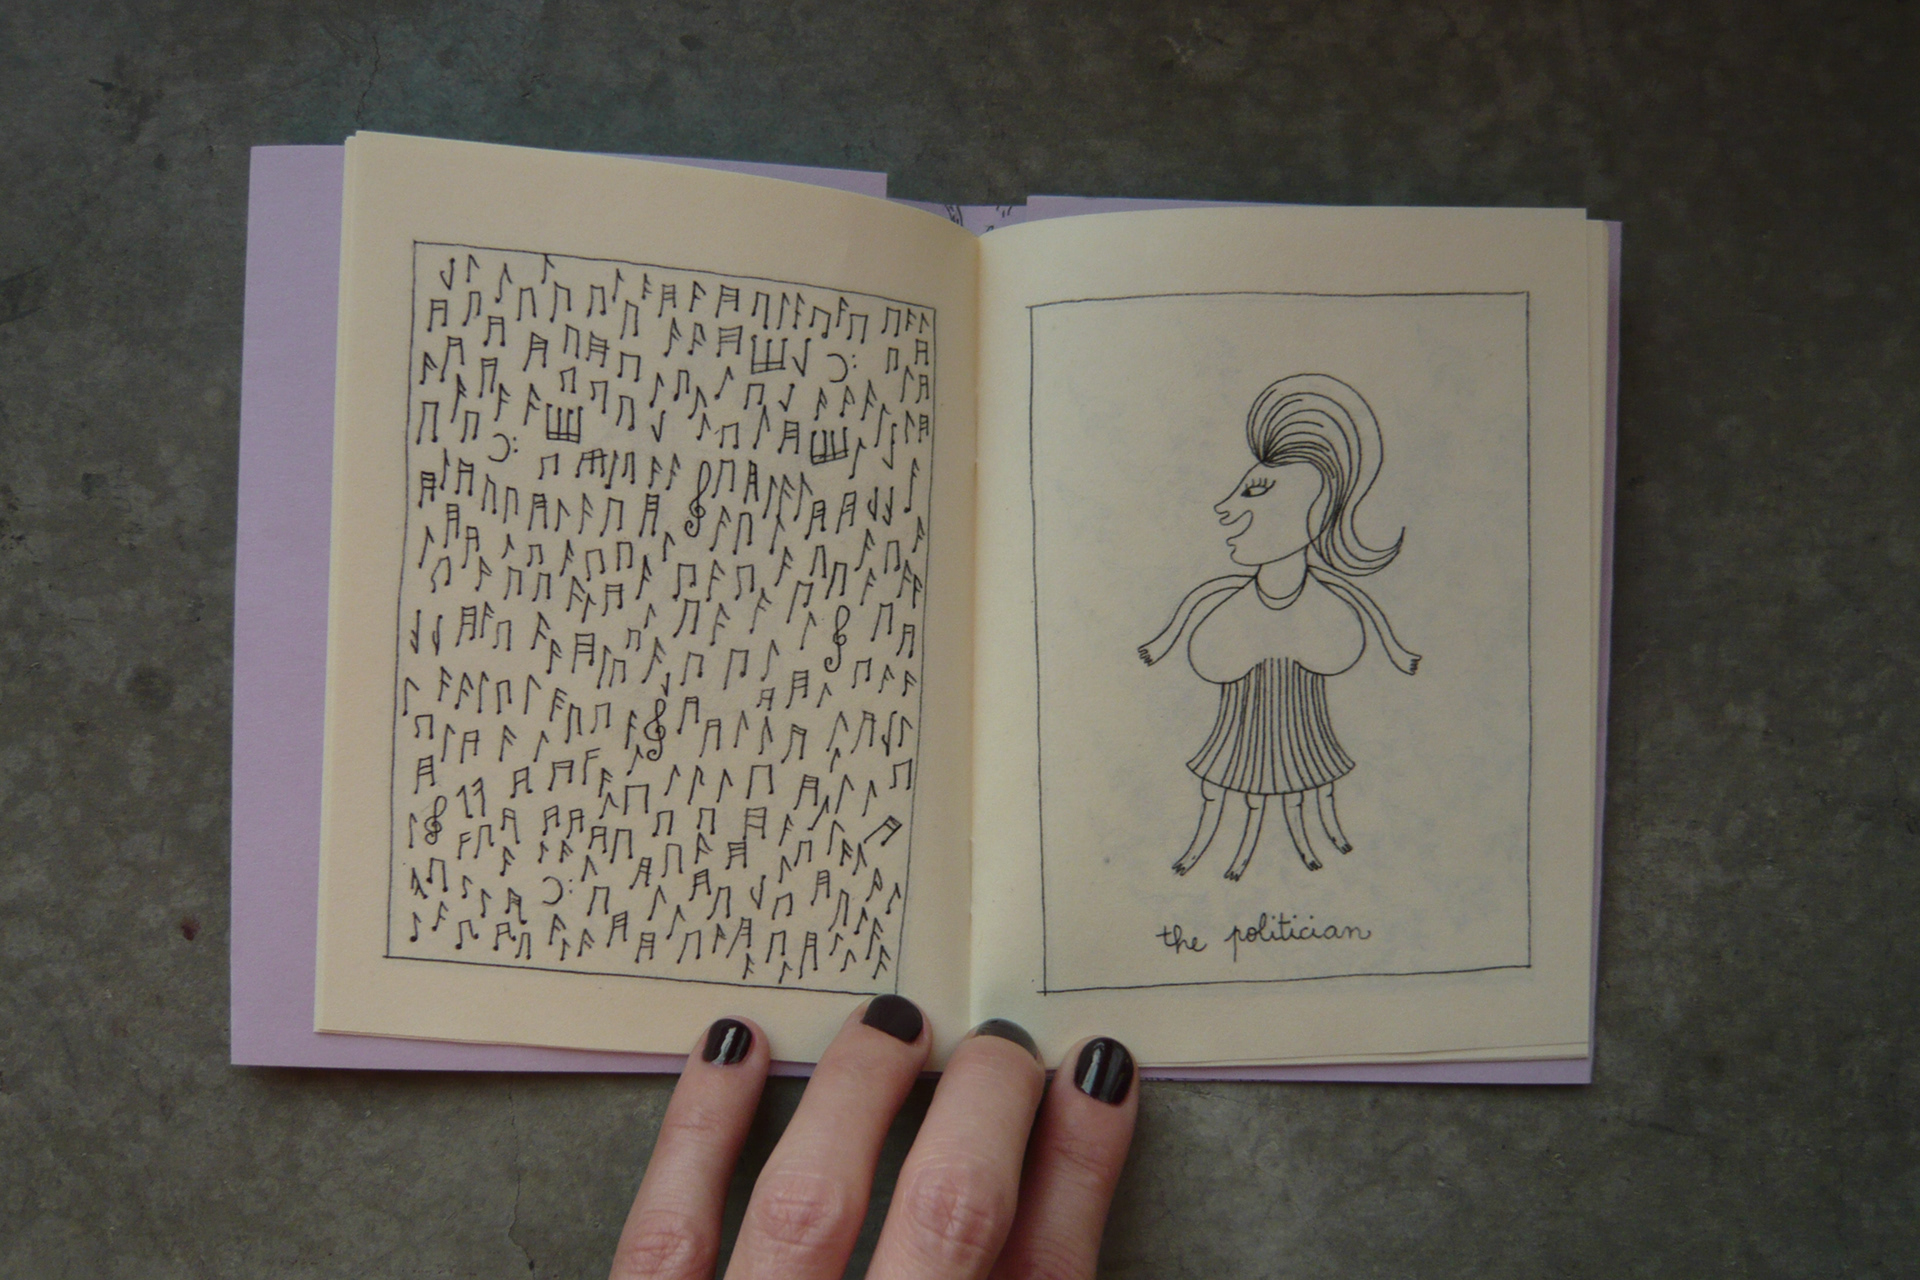 the politician